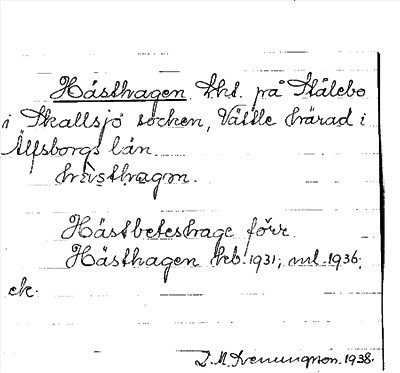 Hästhagen. tht. på Stålebo
i Skallsjö socken, Vättle härad i
Älfsborgs län.
hästhagɷn.
Hästbeteshage förr.
Hästhagen kb. 1931; ml. 1936.
ek.
D.M. Svenningson. 1938.